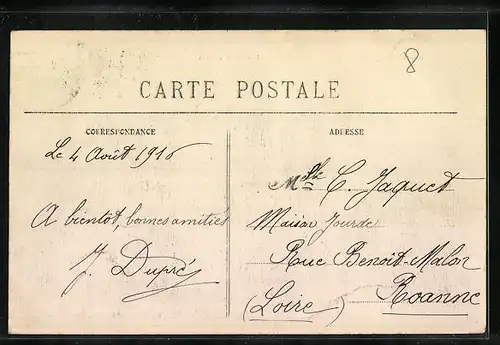 8
CARTE POSTALE
CORRESPONDANCE
ADRESSE
Le 4 Août 1916
A bientôt, bonnes amitiés
J. Dupré
Melle C. Jaquet
Maison Jourde
Rue Benoit-Malon
Roanne
(Loire)